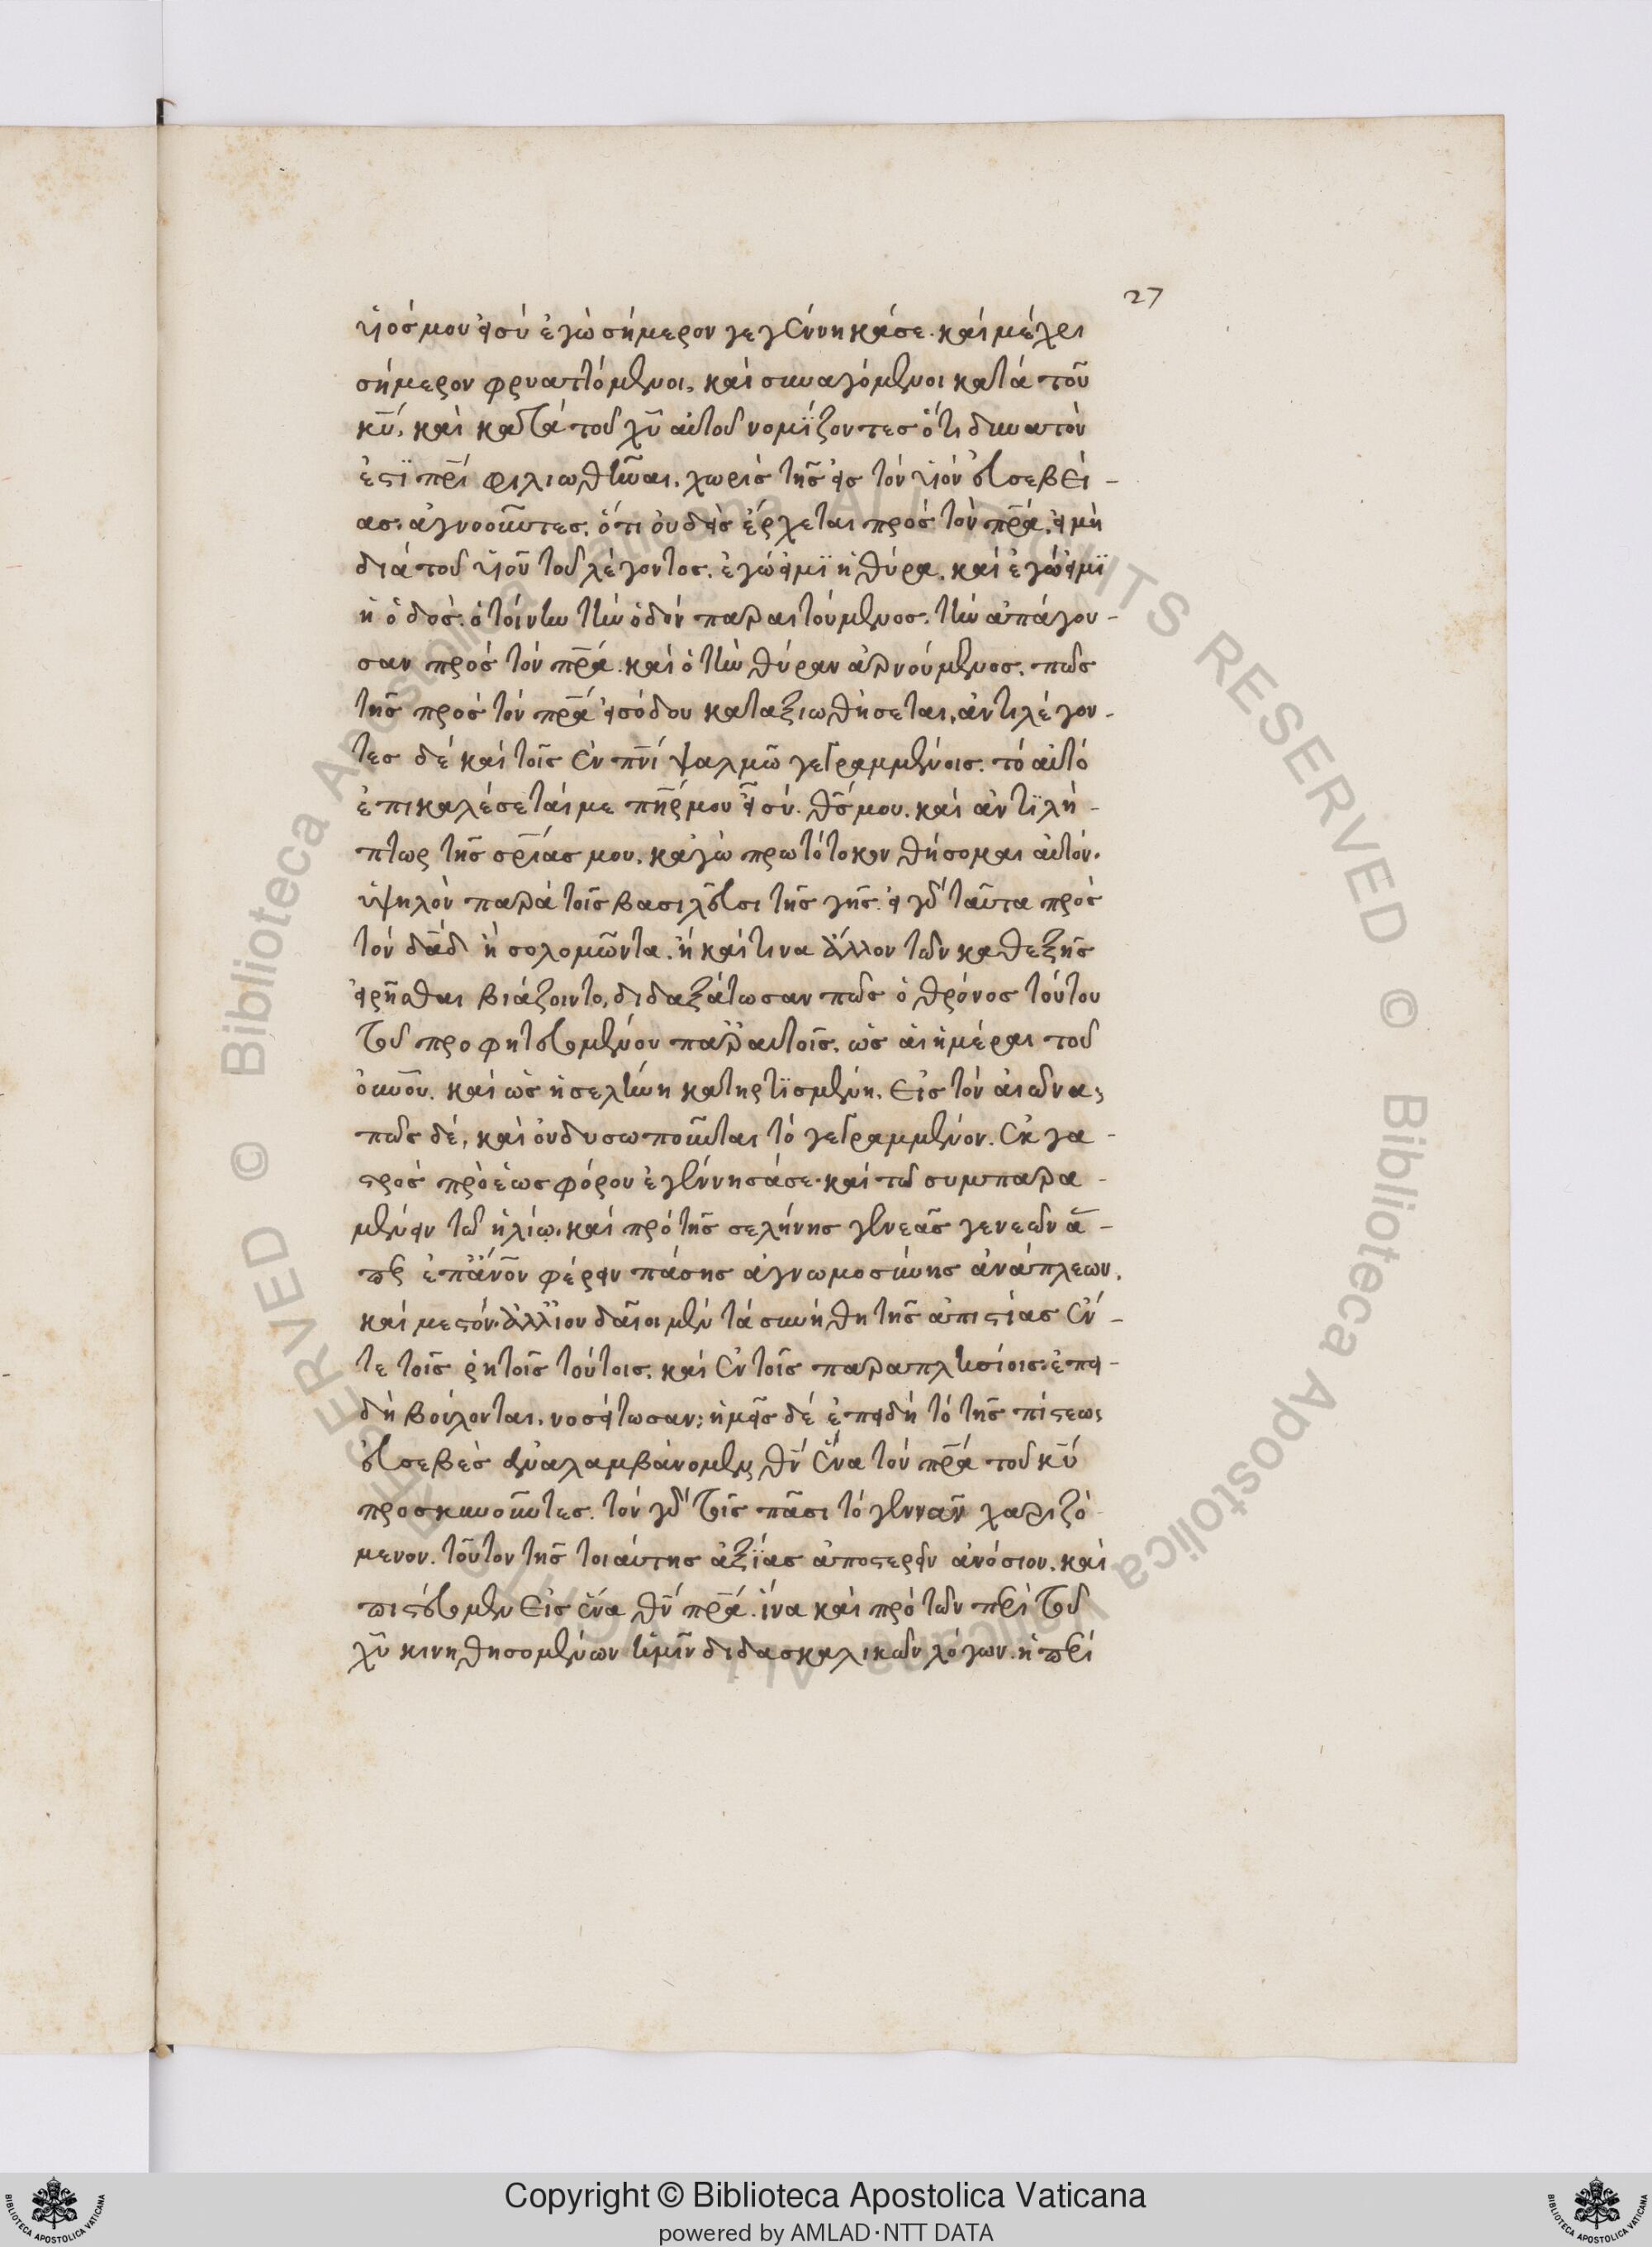 27
υἱός μου εἶ σύ ἐγὼ σήμερον γεγέννηκά σε. καὶ μέχρι
σήμερον φρυαττόμενοι, καὶ συναγόμενοι κατὰ τοῦ
κυ̅, καὶ κατὰ τοῦ χυ̅ αὐτοῦ νομίζοντες ὅτι δυνατὸν
ἐστὶ πρι̅ φιλιωθῆναι. χωρὶς τῆς εἰς τὸν υἱὸν εὐσεβεί-
ας. ἀγνοοῦντες. ὅτι οὐδεὶς ἔρχεται πρὸς τὸν πρα̅. εἰ μὴ
διὰ τοῦ υἱοῦ τοῦ λέγοντος. ἐγώ εἰμι ἡ θύρα. καὶ ἐγώ εἰμι
ἡ ὁδός. ὁ τοίνυν τὴν ὁδόν παραιτούμενος. τὴν ἀπάγου-
σαν πρὸς τὸν πρα̅. καὶ ὁ τὴν θύραν ἀρνούμενος. πῶς
τῆς πρὸς τὸν πρα̅ εἰσόδου καταξιωθήσεται, ἀντιλέγον-
τες δὲ καὶ τοῖς ἐν πνι̅ ψαλμῶ γεγραμμένοις. τὸ αὐτό
ἐπικαλέσεταί με πηρ̅ μου εἶ σύ. θς̅ μου. καὶ ἀντιλή-
πτωρ τῆς σρίας μου. κἀγὼ πρωτότοκον θήσομαι αὐτόν.
ὑψηλὸν παρὰ τοῖς βασιλεῦσι τῆς γῆς. εἰ γὰρ ταῦτα πρὸς
τὸν δαδ̅ ἢ σολομῶντα. ἢ καί τινα ἄλλον τῶν καθεξῆς
εἰρῆσθαι βιάζοιντο, διδαξάτωσαν πῶς ὁ θρόνος τούτου
τοῦ προφητευομένου παρ' αὐτοῖς. ὡς αἱ ἡμέραι τοῦ
ουνου̅. καὶ ὡς ἡ σελήνη κατηρτισμένη. εἰς τὸν αἰῶνα;
πῶς δέ, καὶ οὐ δυσωποῦνται τὸ γεγραμμένον. ἐκ γα-
στρὸς πρὸ ἑωσφόρου ἐγέννησά σε. καὶ τὸ συμπαρα-
μένειν τῶ ἡλίω. καὶ πρὸ τῆς σελήνης γενεᾶς γενεῶν ἅ-
περ ἐπ' ανον̅ φέρειν πάσης ἀγνωμοσύνης ἀνάπλεων.
καὶ μεστόν. ἀλλ' ἰουδαῖοι μὲν τὰ συνήθη τῆς ἀπιστίας ἔν-
τε τοῖς ῥητοῖς τούτοις. καὶ ἐν τοῖς παραπλησίοις. ἐπει-
δὴ βούλονται. νοσείτωσαν; ἡμεῖς δὲ ἐπειδὴ τὸ τῆς πίστεως
εὐσεβὲς ἀναλαμβάνομεν, θν̅ ἕνα τὸν πρα̅ τοῦ κυ̅
προσκυνοῦντες. τὸν γὰρ τοῖς πᾶσι τὸ γεννᾶν χαριζό-
μενον. τοῦτον τῆς τοιαύτης ἀξίας ἀποστερεῖν ἀνόσιον. καὶ
πιστεύομεν εἰς ἕνα θν̅ πρα̅. ἵνα καὶ πρὸ τῶν περὶ τοῦ
χυ̅ κινηθησομένων ἡμῖν διδασκαλικῶν λόγων. ἡ περὶ
© Biblioteca Apostolica Vaticana ALL RIGHTS RESERVED
Copyright © Biblioteca Apostolica Vaticana
powered by AMLAD·NTT DATA